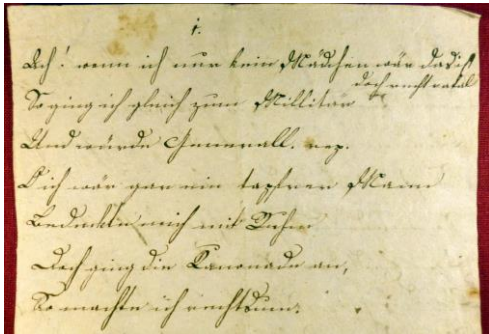 1.
Ach! wenn ich nur kein Mädchen wär das ist
doch recht fatal
So ging ich gleich zum Millitär
Und würde Generall. rez.
O ich wär gar ein tapfrer Mann
Bedeckte mich mit Ruhm
Doch ging die Kanonade an,
So machte ich rechtsum.